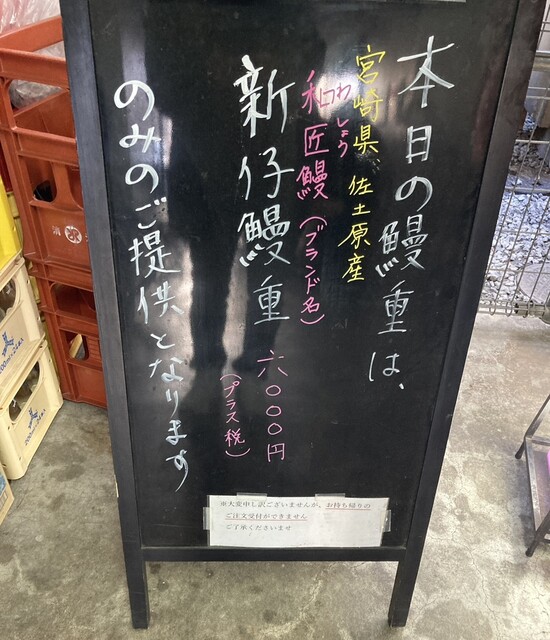 本日の鰻重は、
宮崎県、佐土原産
和匠鰻(ブランド名)
わしょう
新仔鰻重 六000円
(プラス税)
のみのご提供となります
※大変申し訳ございませんが、お持ち帰りの
ご注文受付ができません
ご了承くださいませ